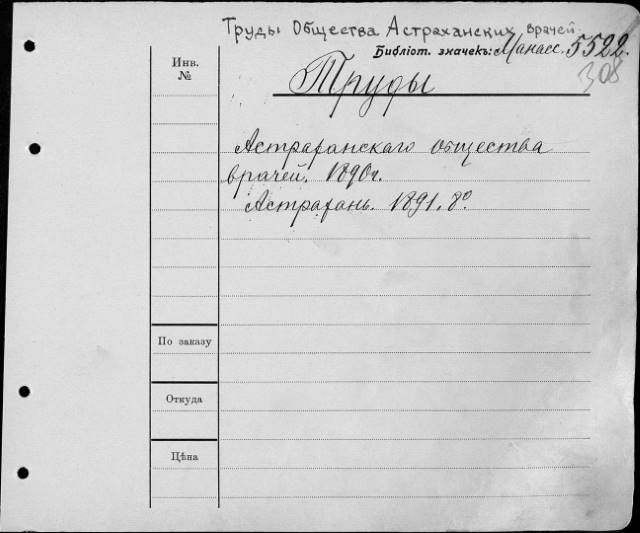 Труды Общества Астраханских врачей.
Библіот. значекъ: Манасс. 5522.
308
Инв.
№
Труды
Астраханскаго общества
врачей. 1890 г.
Астрахань. 1891. 8º
По заказу
Откуда
Цѣна